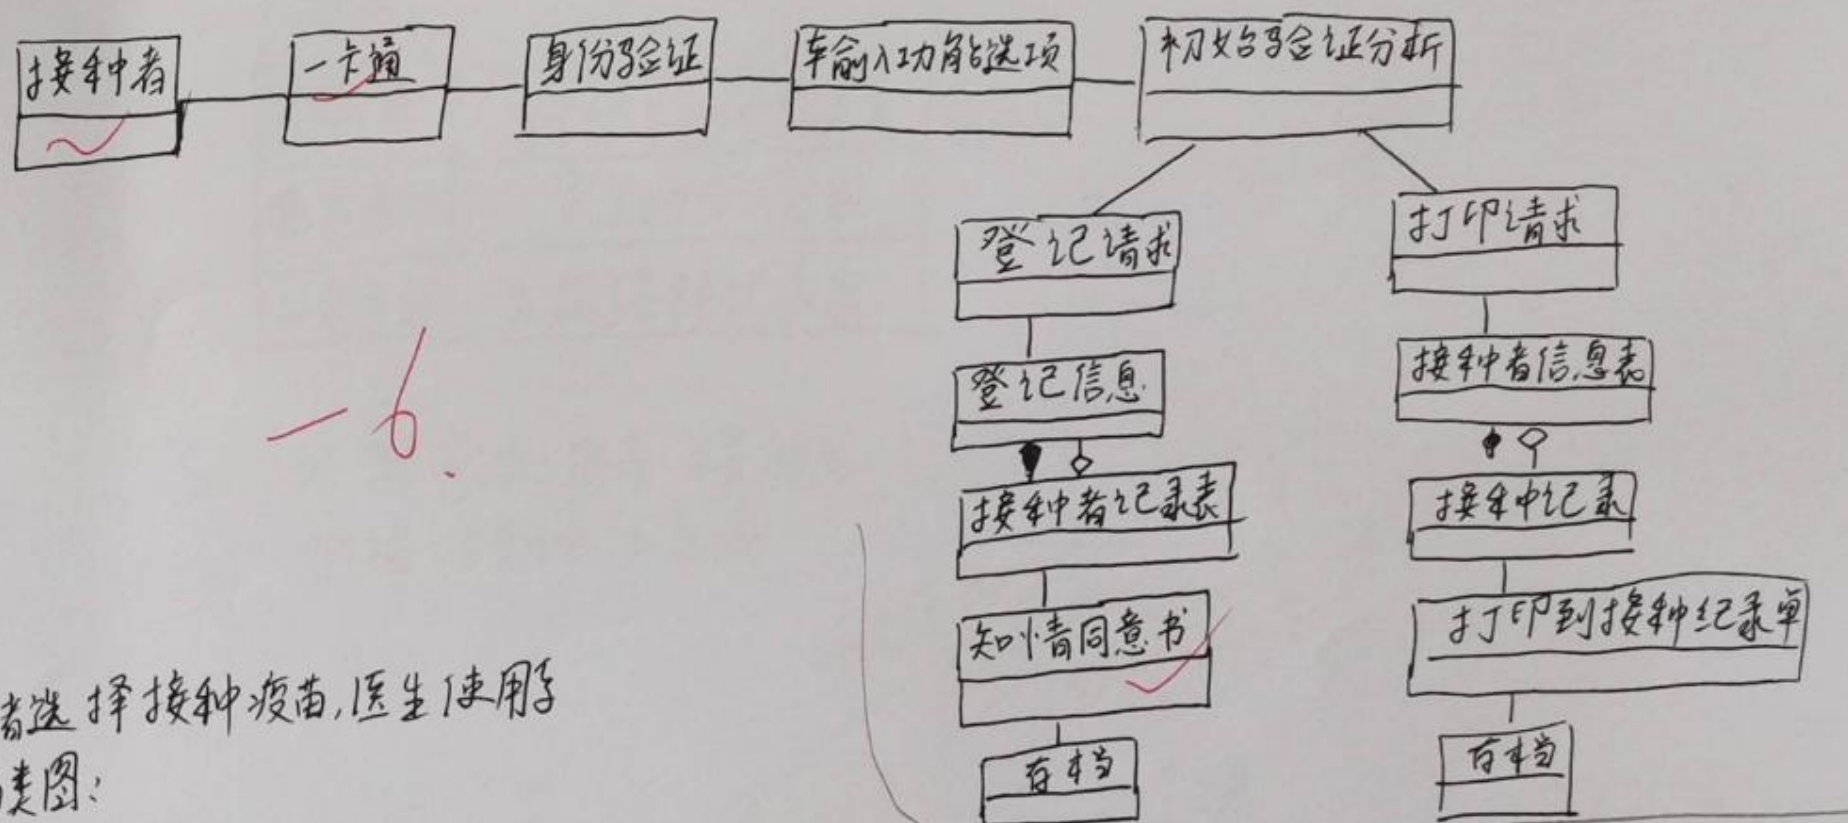 接种者
一卡通
身份验证
输入功能选项
初始验证分析
登记请求
打印请求
登记信息
接种者信息表
接种者记录表
接种记录
知情同意书
打印到接种纪录单
存档
存档
-6.
者选择接种疫苗,医生使用
类图: